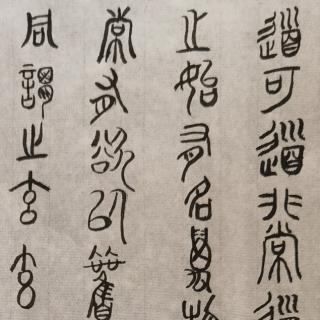 道可道非常道
之始有名萬物
常有欲以觀
同謂之玄玄